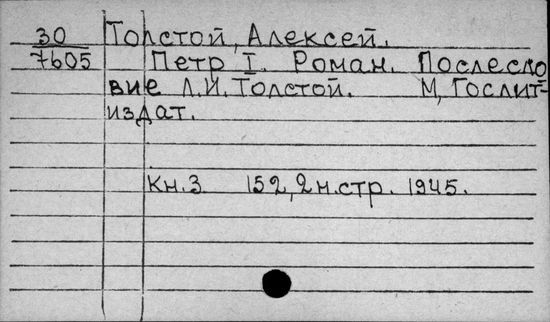 30 Толстой, Алексей.
7605 Петр I. Роман. Послесло
вие Л.И. Толстой. М, Гослит-
издат.
Кн.3 152, 2 н.стр. 1945.